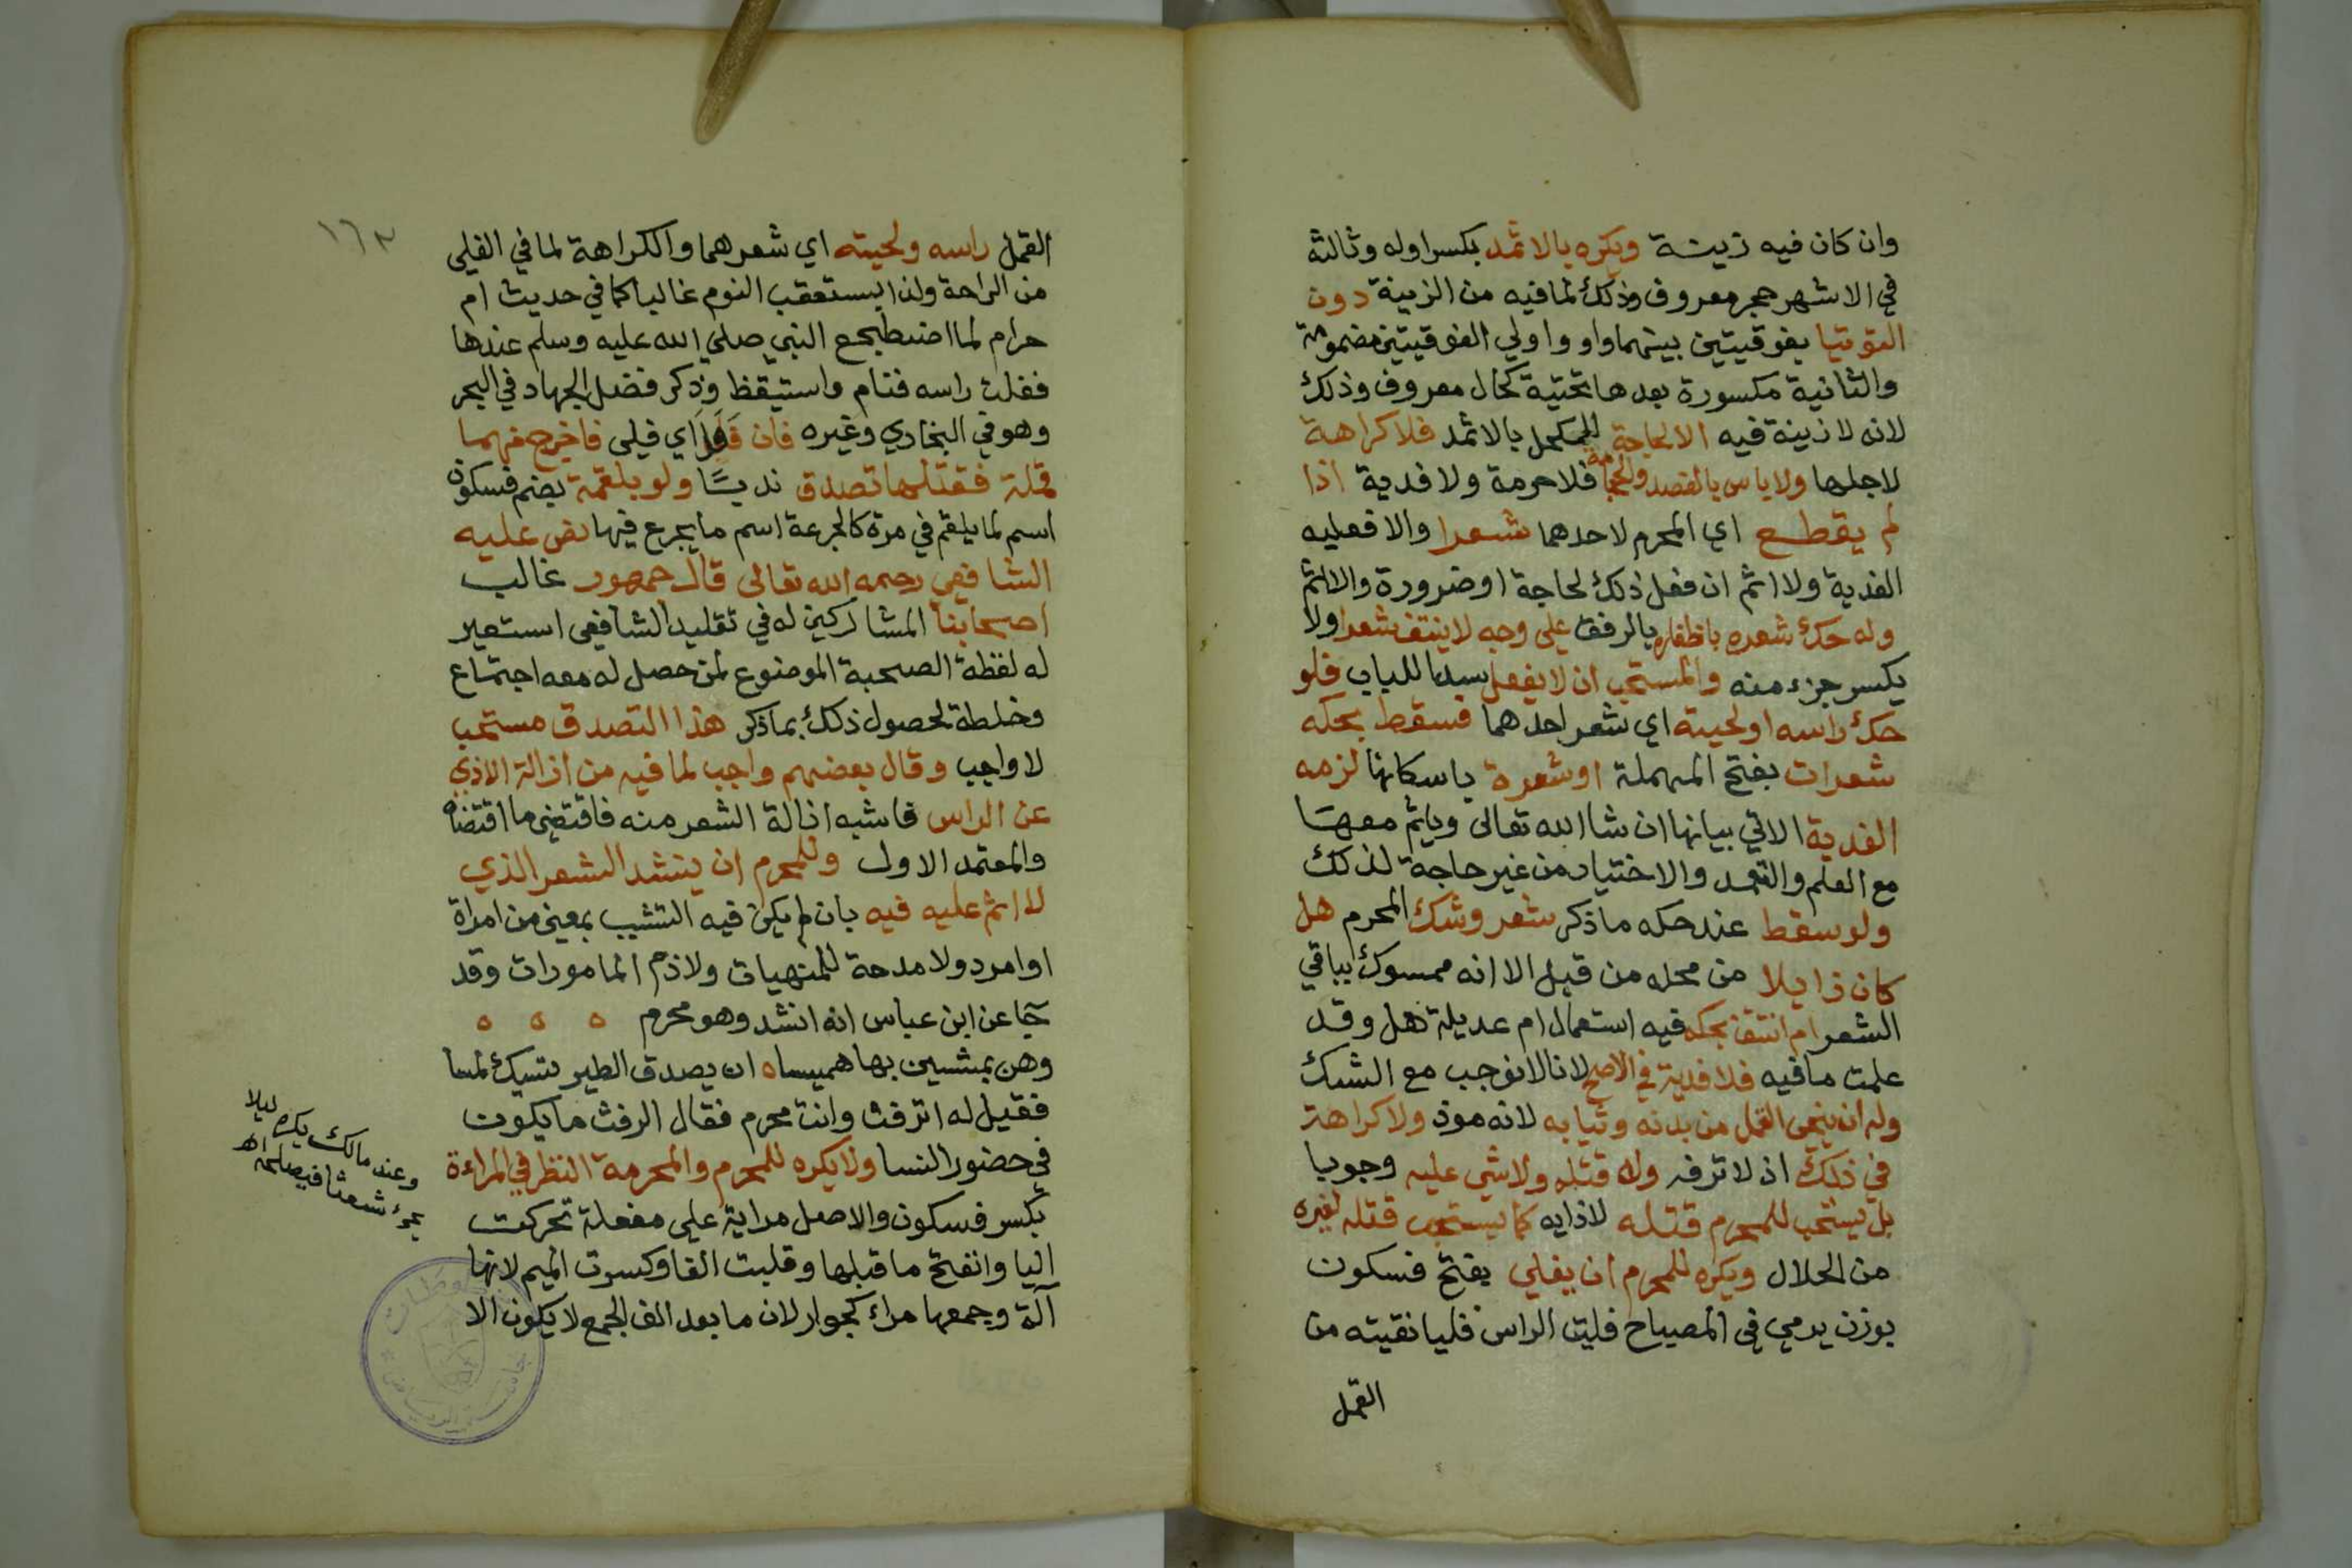 وان كان فيه زينة ويكره بالاثمد بكسر اوله وثالثه
في الاشهر حجر معروف وذلك لما فيه من الزينة دون
التوتيا بفوقيتين بينهما واو واولي الفوقيتين مضمومة
والثانية مكسورة بعدها تحتية كحال معروف وذلك
لانه لا زينة فيه الا لحاجة للمكتحل بالاثمد فلا كراهة
لاجلها ولا باس بالفصد والحجامة فلا حرمة ولا فدية اذا
لم يقطع اي المحرم لاحدهما شعرا والا فعليه
الفدية ولا اثم ان فعل ذلك لحاجة او ضرورة والا اثم
وله حك شعره باظفاره بالرفق على وجه لا ينتف شعرا ولا
يكسر جزء منه والمستحب ان لا يفعل سدا للباب فلو
حك راسه او لحيته اي شعر احدهما فسقط بحكه
شعرات بفتح المهملة او شعرة باسكانها لزمه
الفدية الاتي بيانها ان شا الله تعالى وياثم معها
مع العلم والتعمد والاختيار من غير حاجة لذلك
ولو سقط عند حكه ما ذكر شعر وشك المحرم هل
كان زايلا من محله من قبل الا انه ممسوك بباقي
الشعر ام انتتف بحكه فيه استعمال ام عديلة هل وقد
علمت ما فيه فلا فدية في الاصح لانا لا نوجب مع الشك
وله ان ينحي القمل من بدنه وثيابه لانه موذ ولا كراهة
في ذلك اذ لا ترفه وله قتله ولا شي عليه وجوبا
بل يستحب للمحرم قتله لاذايه كما يستحب قتله لغيره
من الحلال ويكره للمحرم ان يفلي بفتح فسكون
بوزن يرمي في المصباح فليت الراس فليا نقيته من
القمل
١٦٣
القمل راسه ولحيته اي شعرهما والكراهة لما في الفلي
من الراحة ولذا يستعقب النوم غالبا كما في حديث ام
حرام لما اضطجع النبي صلي الله عليه وسلم عندها
ففلت راسه فنام واستيقظ وذكر فضل الجهاد في البحر
وهو في البخاري وغيره فان فلا اي فلى فاخرج منهما
قملة فقتلها تصدق ندبا ولو بلقمة بضم فسكون
اسم لما يلقم في مرة كالجرعة اسم ما يجرع فيها نص عليه
الشافعي رحمه الله تعالى قال جمهور غالب
اصحابنا المشاركين له في تقليد الشافعى استعير
له لفظة الصحبة الموضوع لمن حصل له معه اجتماع
وخلطة لحصول ذلك بما ذكر هذا التصدق مستحب
لا واجب وقال بعضهم واجب لما فيه من ازالة الاذي
عن الراس فاشبه ازالة الشعر منه فاقتضى ما اقتضاه
والمعتمد الاول وللمحرم ان ينشد الشعر الذي
لا اثم عليه فيه بان لم يكن فيه التشبيب بمعين من امراة
او امرد ولا مدحة للمنهيات ولا ذم المامورات وقد
جا عن ابن عباس انه انشد وهو محرم ه ه ه
وهن يمشين بها هميسا ه ان يصدق الطير
فقيل له اترفث وانت محرم فقال الرفث ما يكون
في حضور النسا ولا يكره للمحرم والمحرمة النظر في المراءة
بكسر فسكون والاصل مراية على مفعلة تحركت
اليا وانفتح ما قبلها وقلبت الفا وكسرت الميم لانها
آلة وجمعها مراء كجوار لان ما بعد الف الجمع لا يكون الا
وعند مالك يكره ليلا
يرى شعثا فيصلحه اه